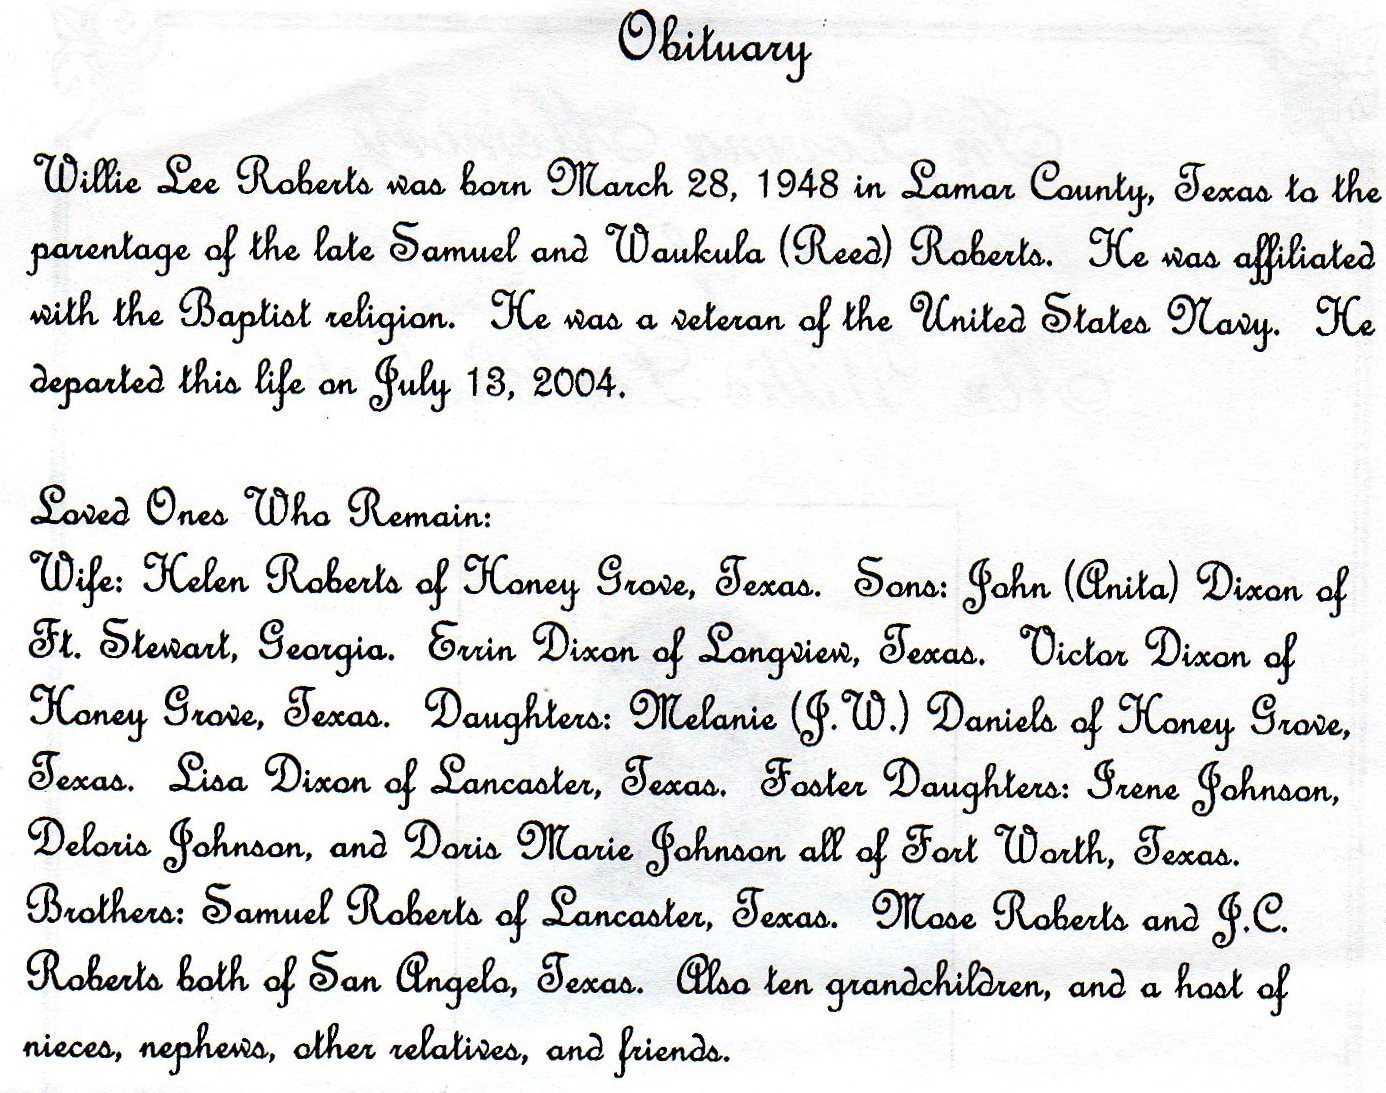 Obituary
Willie Lee Roberts was born March 28, 1948 in Lamar County, Texas to the
parentage of the late Samuel and Waukula (Reed) Roberts. He was affiliated
with the Baptist religion. He was a veteran of the United States Navy. He
departed this life on July 13, 2004.
Loved Ones Who Remain:
Wife: Helen Roberts of Honey Grove, Texas. Sons: John (Anita) Dixon of
Ft. Stewart, Georgia. Errin Dixon of Longview, Texas. Victor Dixon of
Honey Grove, Texas. Daughters: Melanie (J.W.) Daniels of Honey Grove,
Texas. Lisa Dixon of Lancaster, Texas. Foster Daughters: Irene Johnson,
Deloris Johnson, and Doris Marie Johnson all of Fort Worth, Texas.
Brothers: Samuel Roberts of Lancaster, Texas. Mose Roberts and J.C.
Roberts both of San Angelo, Texas. Also ten grandchildren, and a host of
nieces, nephews, other relatives, and friends.